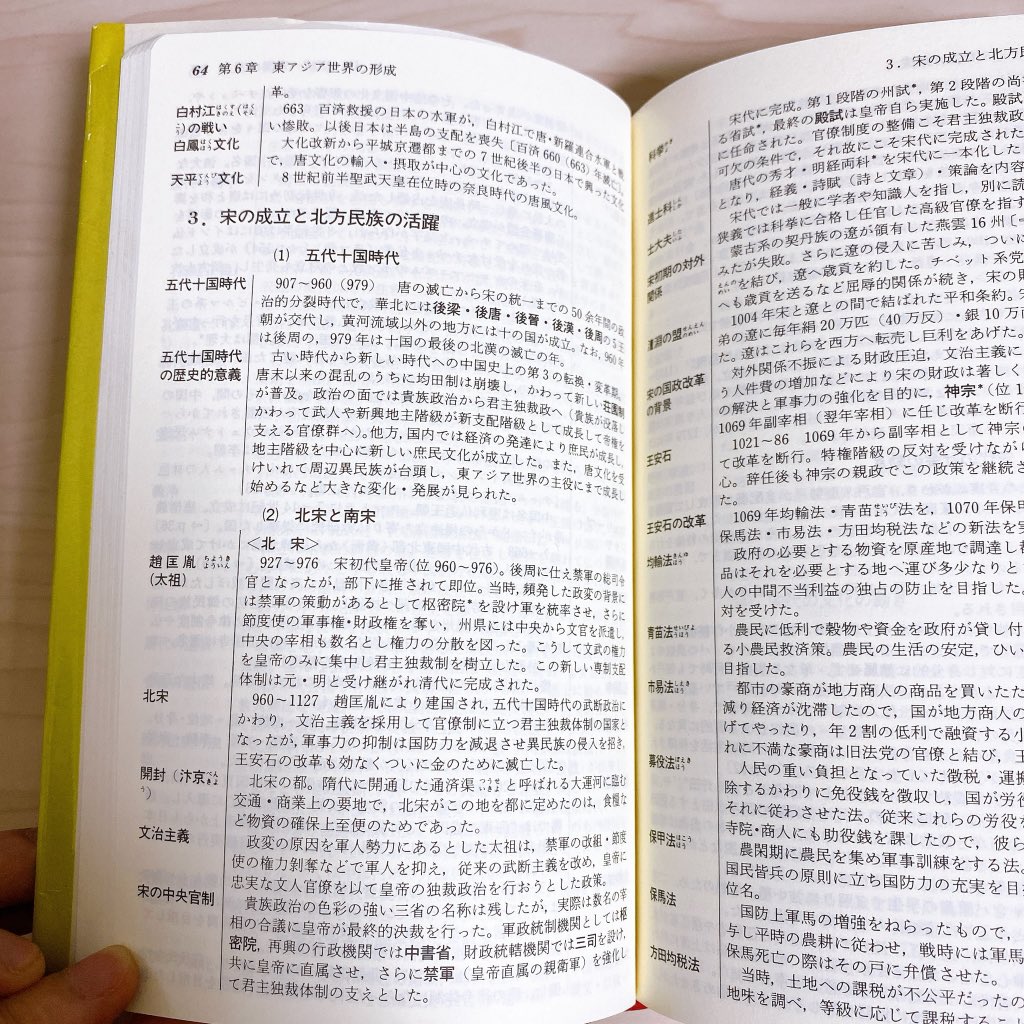 64 第6章 東アジア世界の形成
革。
白村江(はくすきのえ(はくそんこう))の戦い
663 百済救援の日本の水軍が，白村江で唐・新羅連合水軍と戦
い惨敗。以後日本は半島の支配を喪失〔百済660(663)年滅亡〕。
白鳳文化
大化改新から平城京遷都までの7世紀後半の日本で興った文化
で，唐文化の輸入・摂取が中心の文化であった。
天平文化
8世紀前半聖武天皇在位時の奈良時代の唐風文化。
3．宋の成立と北方民族の活躍
(1) 五代十国時代
五代十国時代
907～960(979) 唐の滅亡から宋の統一までの50余年間の政
治的分裂時代で，華北には後梁・後唐・後晋・後漢・後周の5王
朝が交代し，黄河流域以外の地方には十の国が成立。なお，960年
は後周の，979年は十国の最後の北漢の滅亡の年。
五代十国時代
の歴史的意義
古い時代から新しい時代への中国史上の第3の転換・変革期。
唐末以来の混乱のうちに均田制は崩壊し，かわって新しい荘園制
が普及。政治の面では貴族政治から君主独裁政へ（貴族が没落し
かわって武人や新興地主階級が新支配階級として成長して帝権を
支える官僚群へ）。他方，国内では経済の発達により庶民が成長し，
地主階級を中心に新しい庶民文化が成立した。また，唐文化を受
けいれて周辺異民族が台頭し，東アジア世界の主役にまで成長し
始めるなど大きな変化・発展が見られた。
(2) 北宋と南宋
＜北 宋＞
趙匡胤
(太祖)
927～976 宋初代皇帝(位960～976)。後周に仕え禁軍の総司令
官となったが，部下に推されて即位。当時，頻発した政変の背景に
は禁軍の策動があるとして枢密院*を設け軍を統率させ，さらに
節度使の軍事権・財政権を奪い，州県には中央から文官を派遣し，
中央の宰相も数名とし権力の分散を図った。こうして文武の権力
を皇帝のみに集中し君主独裁制を樹立した。この新しい専制支配
体制は元・明と受け継がれ清代に完成された。
北宋
960～1127 趙匡胤により建国され，五代十国時代の武断政治に
かわり，文治主義を採用して官僚制に立つ君主独裁体制の国家と
なったが，軍事力の抑制は国防力を減退させ異民族の侵入を招き，
王安石の改革も効なくついに金のために滅亡した。
開封（汴京）
北宋の都。隋代に開通した通済渠と呼ばれる大運河に臨む
交通・商業上の要地で，北宋がこの地を都に定めたのは，食糧な
ど物資の確保上至便のためであった。
文治主義
政変の原因を軍人勢力にあるとした太祖は，禁軍の改組・節度
使の権力剝奪などで軍人を抑え，従来の武断主義を改め，皇帝に
忠実な文人官僚を以て皇帝の独裁政治を行おうとした政策。
宋の中央官制
貴族政治の色彩の強い三省の名称は残したが，実際は数名の宰
相の合議に皇帝が最終的決裁を行った。軍政統制機関としては枢
密院，再興の行政機関では中書省，財政統轄機関では三司を設け，
共に皇帝に直属させ，さらに禁軍（皇帝直属の親衛軍）を強化し
て君主独裁体制の支えとした。
3．宋の成立と北方民
科挙
宋代に完成。第1段階の州試*，第2段階の尚
る省試*，最終の殿試は皇帝自ら実施した。殿試
に任命された。官僚制度の整備こそ君主独裁政
可欠の条件で，それ故にこそ宋代に完成された
進士科
唐代の秀才・明経両科*を宋代に一本化した
となり，経義・詩賦（詩と文章）・策論を内容
士大夫
宋代では一般に学者や知識人を指し，別に読
狭義では科挙に合格し任官した高級官僚を指す
宋初期の対外
関係
蒙古系の契丹族の遼が領有した燕雲16州
みたが失敗。さらに遼の侵入に苦しみ，ついに
を結び，遼へ歳貢を約した。チベット系党
へも歳貢を送るなど屈辱的関係が続き，宋の財
澶淵の盟
1004年宋と遼との間で結ばれた平和条約。宋
弟の遼に毎年絹20万匹（40万反）・銀10万両
た。遼はこれらを西方へ転売し巨利をあげた。
宋の国政改革
の背景
対外関係不振による財政圧迫，文治主義に
う人件費の増加などにより宋の財政は著しく
の解決と軍事力の強化を目的に，神宗*（位1
1069年副宰相（翌年宰相）に任じ改革を断行
王安石
1021～86 1069年から副宰相として神宗の
て改革を断行。特権階級の反対を受けながら
心。辞任後も神宗の親政でこの政策を継続さ
た。
王安石の改革
1069年均輸法・青苗法を，1070年保甲
保馬法・市易法・方田均税法などの新法を実
均輸法
政府の必要とする物資を原産地で調達し都
品はそれを必要とする地へ運び多少なりと
人の中間不当利益の独占の防止を目指した。
対を受けた。
青苗法
農民に低利で穀物や資金を政府が貸し付
る小農民救済策。農民の生活の安定，ひい
目指した。
市易法
都市の豪商が地方商人の商品を買いたた
減り経済が沈滞したので，国が地方商人の
げてやったり，年2割の低利で融資する小
れに不満な豪商は旧法党の官僚と結び，王
募役法
人民の重い負担となっていた徴税・運搬
除するかわりに免役銭を徴収し，国が労役
それに従わせた法。従来これらの労役を
寺院・商人にも助役銭を課したので，彼ら
保甲法
農閑期に農民を集め軍事訓練をする法。
国民皆兵の原則に立ち国防力の充実を目
位名。
保馬法
国防上軍馬の増強をねらったもので，
与し平時の農耕に従わせ，戦時には軍馬
保馬死亡の際はその戸に弁償させた。
方田均税法
当時，土地への課税が不公平だったの
地味を調べ，等級に応じて課税するこ